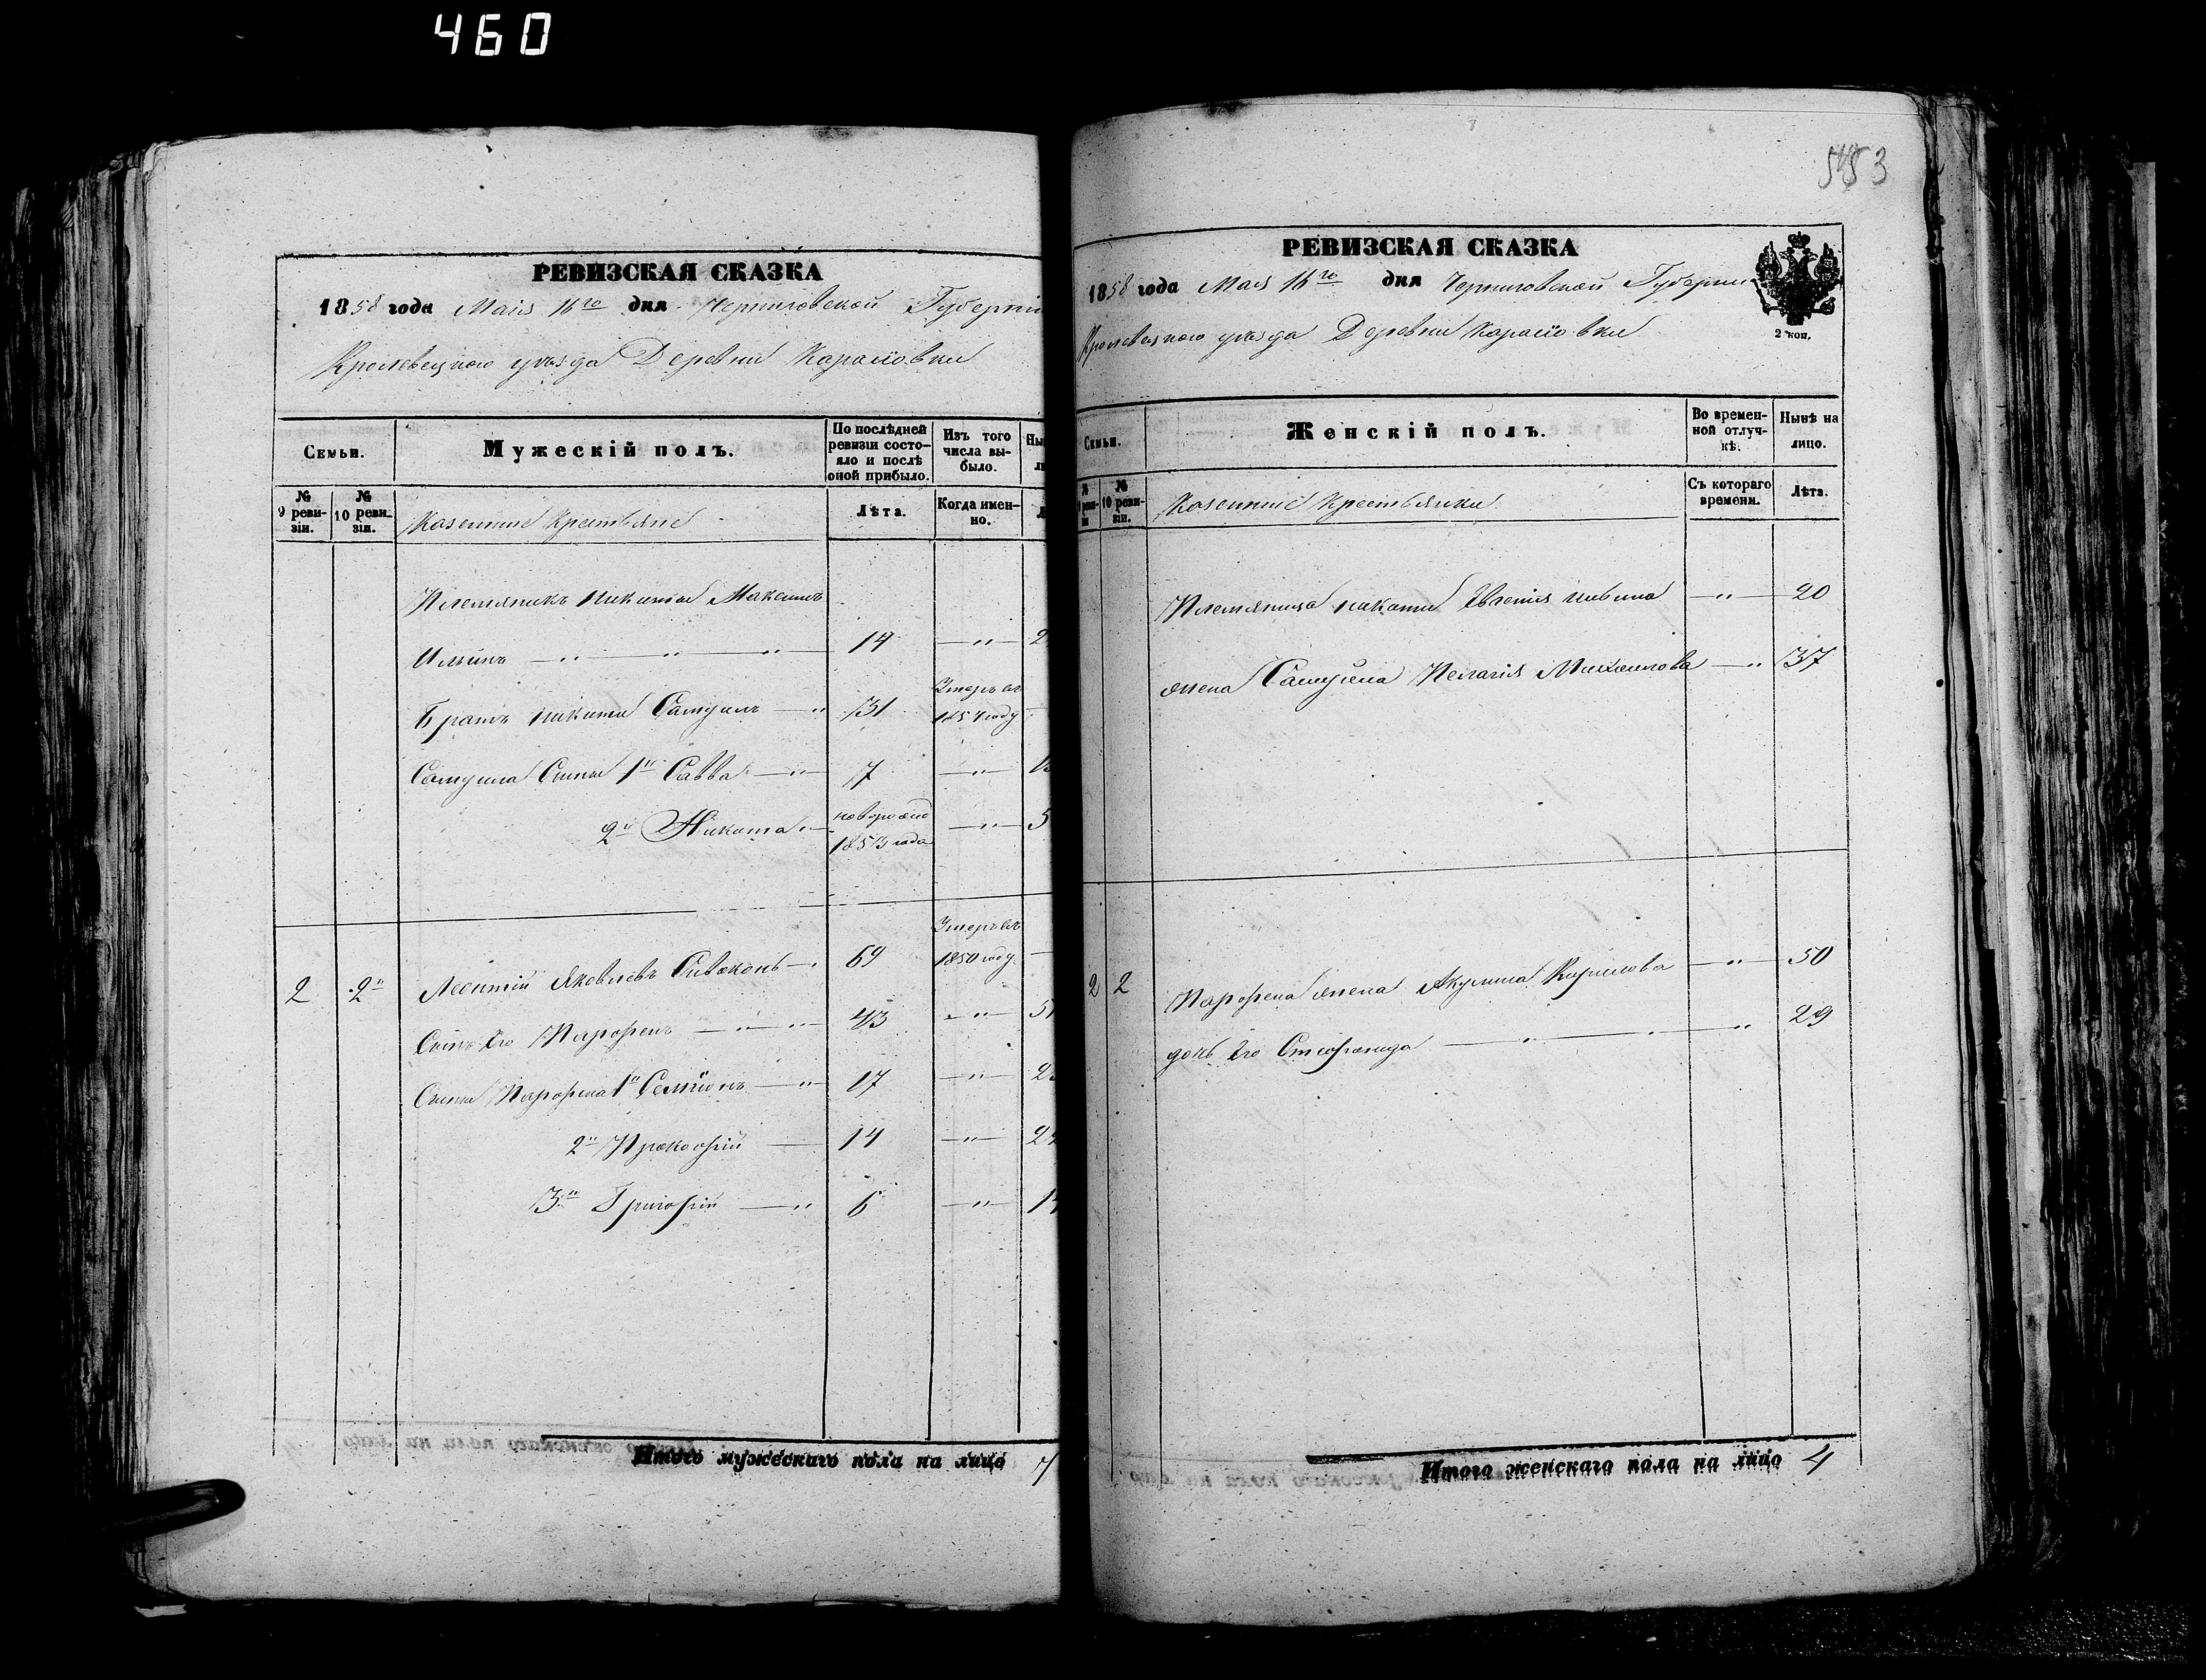 460
РЕВИЗСКАЯ СКАЗКА
1858 года Маія 16го дня Черниговской Губерніи
Кролевецкого уѣзда Деревни
Семьи.
Мужескій полъ.
По послѣдней ревизіи состо-
яло и послѣ
оной прибыло.
Изъ того
числа вы-
было.
№
9 реви-
зіи.
№
10 реви-
зіи.
Казенные Крестьяне
Лѣта.
Когда имен-
но.
Племяникъ Никиты Максимъ
Ильинъ 14
Братъ Никиты Самуилъ 31 Умеръ въ
1854 году
Самуила Сыны 1й Савва 7
2й Никита новорожд 5
1853 года
2 2й Леонтій Яковлевъ 69 Умеръ въ
1850 году
Сынъ Его Парфенъ 43
Сыны Парфена 1й Семіонъ 17
2й Прокофій 14
3й Григорій 6
Итого мужескаго пола на лицо 7
553
РЕВИЗСКАЯ СКАЗКА
1858 года Маія 16го дня Черниговской Губерніи
2 коп.
Кролевецкого уѣзда Деревни
Семьи.
Женскій полъ.
Во времен-
ной отлуч-
кѣ.
Нынѣ на
лицо.
№
9 реви-
зіи
№
10 реви-
зіи.
Казенные Крестьянки
Съ котораго
времени.
Лѣта.
Племяница Никиты 20
жена Самуила Пелагія Михаилова 37
2 2 Парфена жена Акулина Кирилова 50
дочь Его Стефанида 29
Итого женскаго пола на лицо 4